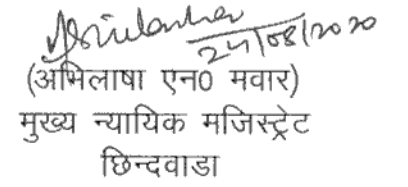 24/08/2020
(अभिलाषा एन0 मवार)
मुख्य न्यायिक मजिस्ट्रेट
छिन्दवाडा